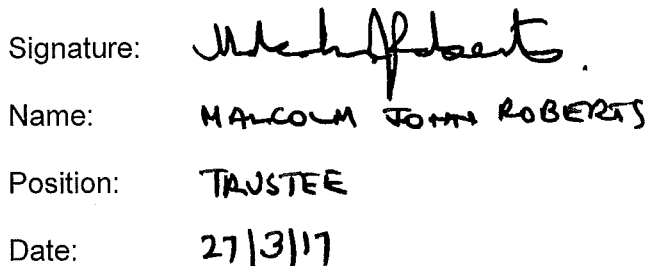 Signature:
Name: MALCOLM JOHN ROBERTS
Position: TRUSTEE
Date: 27/3/17